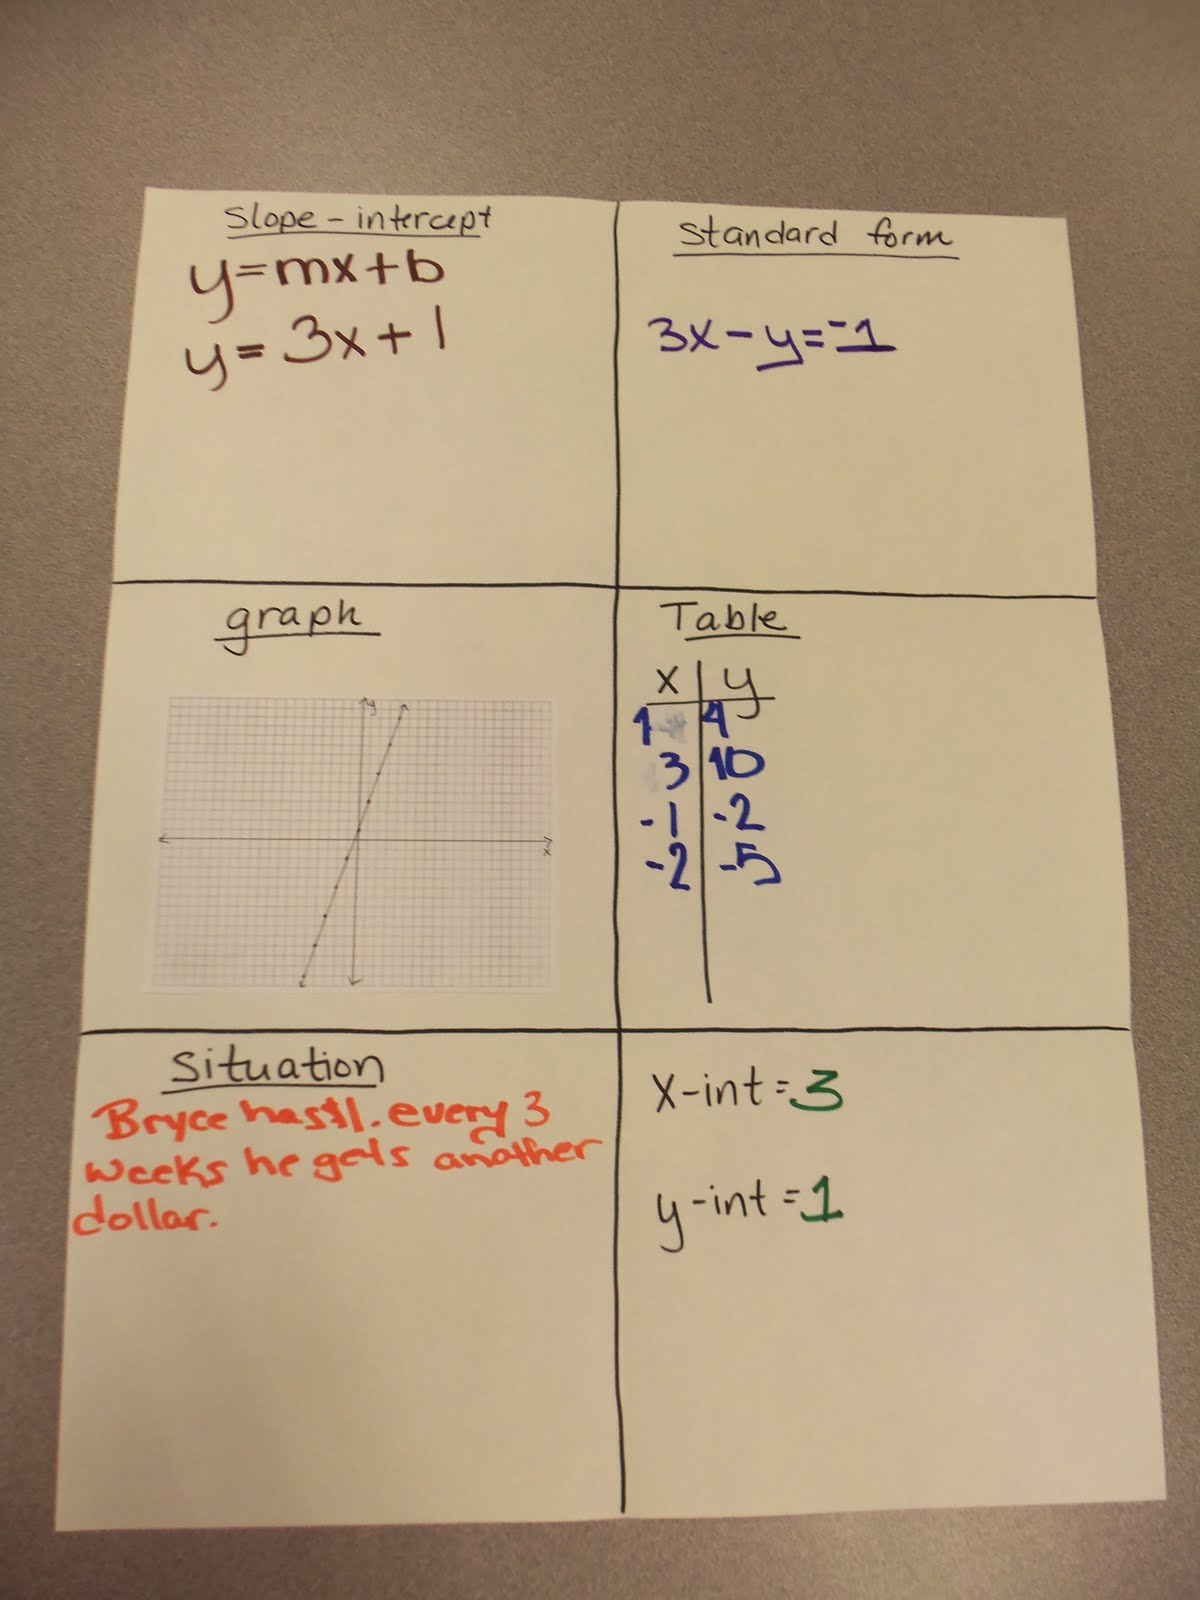 Slope-intercept
y=mx+b
y=3x+1
Standard form
3x-y=-1
graph
y
x
Table
x y
1 4
3 10
-1 -2
-2 -5
Situation
Bryce has $1. every 3
weeks he gets another
dollar.
x-int=3
y-int=1